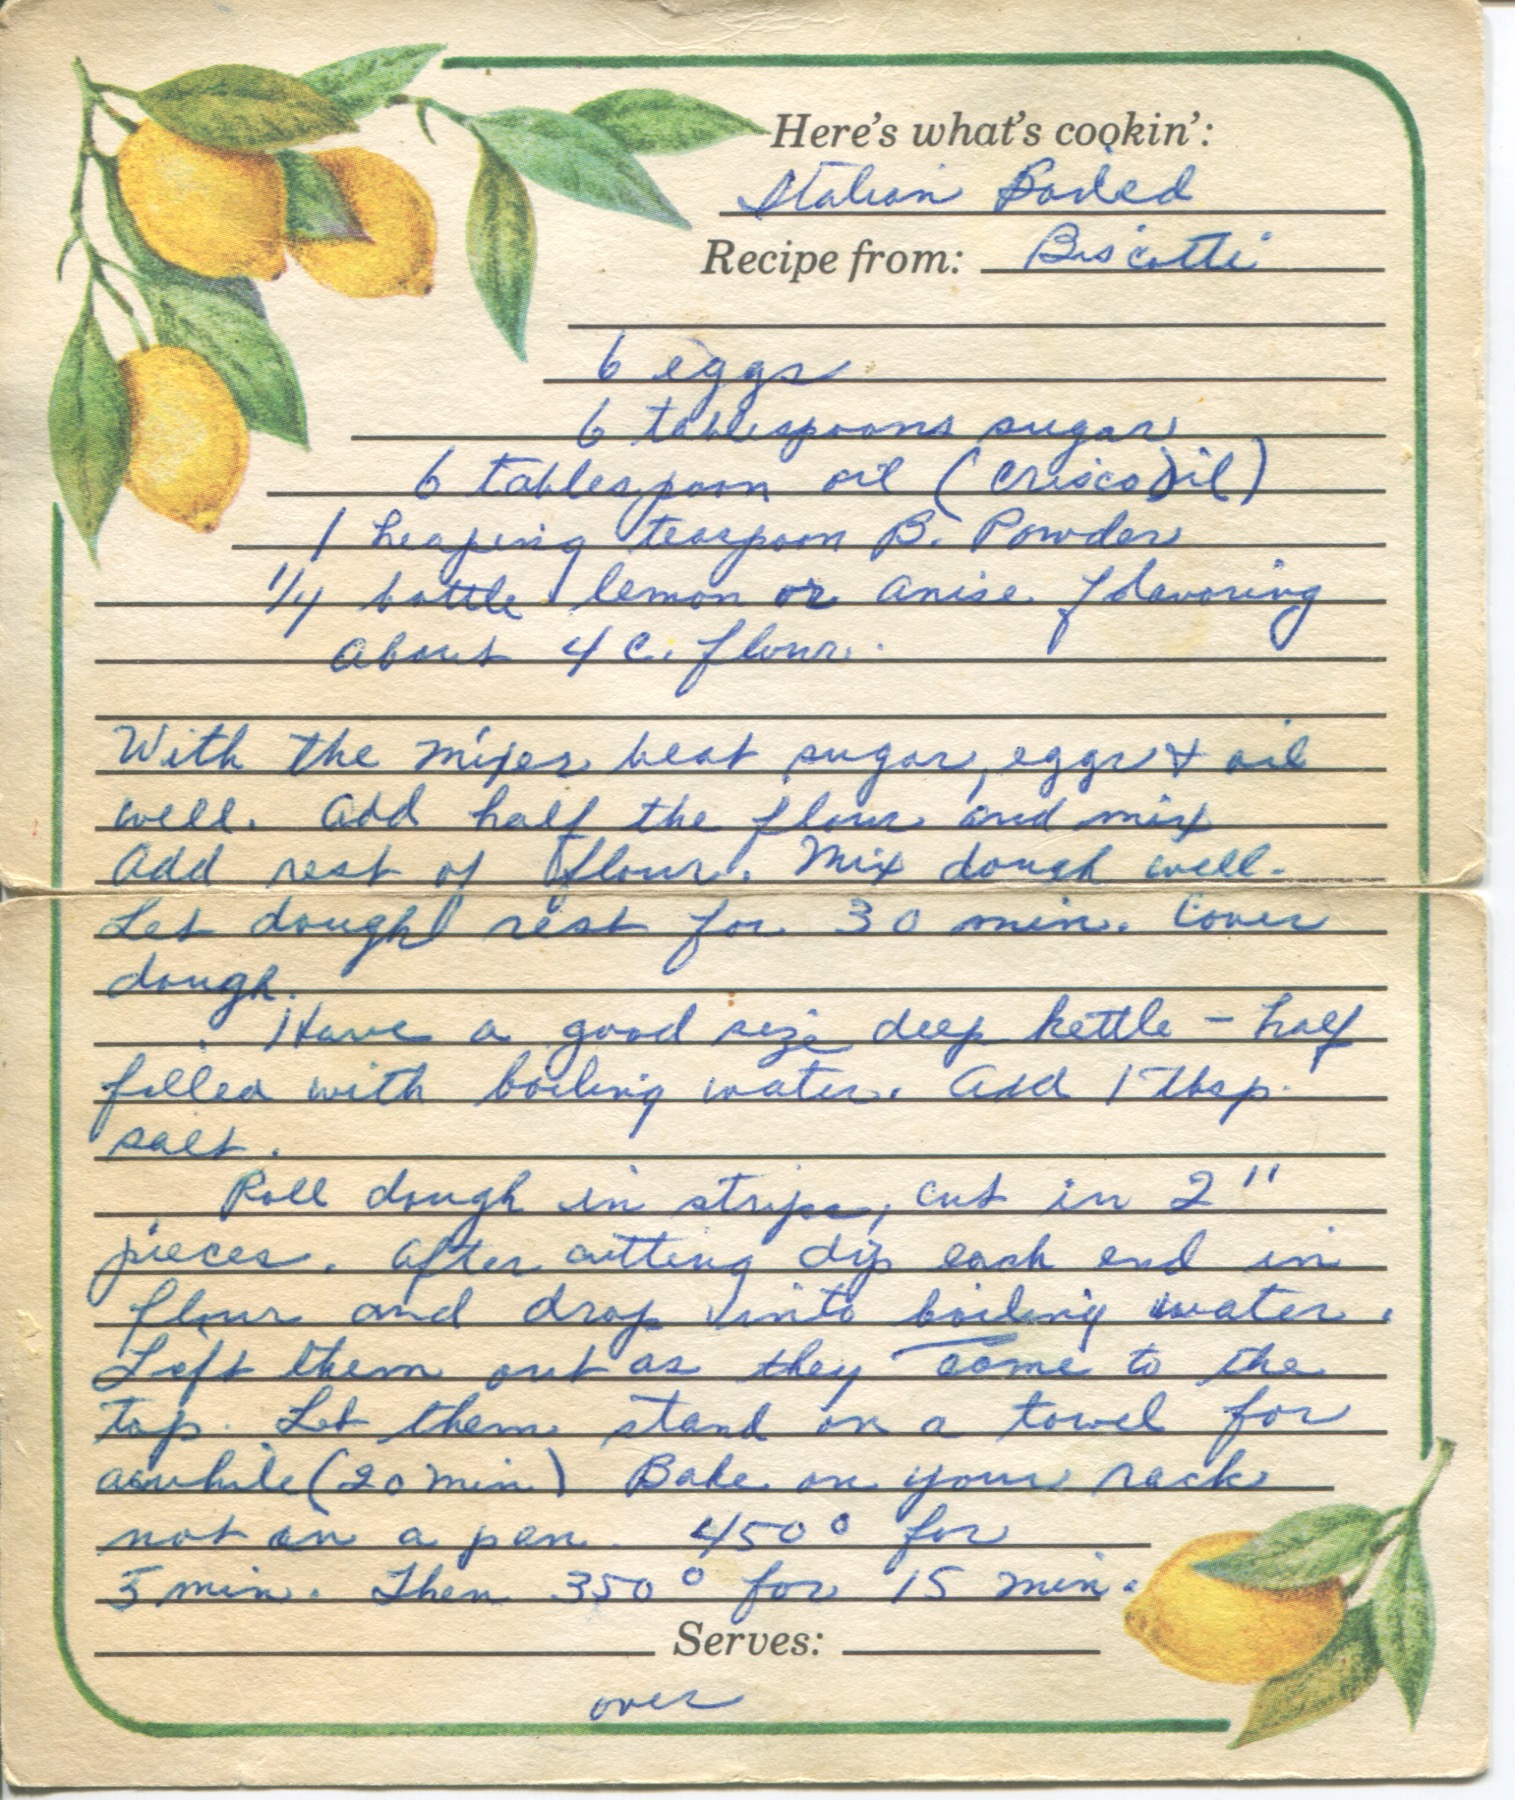 Here's what's cookin':
Italian Boiled
Recipe from: Biscotti
6 eggs
6 tablespoons sugar
6 tablespoon oil (crisco oil)
1 heaping teaspoon B. Powder
1/4 bottle lemon or anise flavoring
about 4 c. flour.
With the mixer beat sugar, eggs & oil
well. Add half the flour and mix
Add rest of flour. Mix dough well.
Let dough rest for 30 min. Cover
dough.
Have a good size deep kettle - half
filled with boiling water. Add 1 Tbsp.
salt.
Roll dough in strips, cut in 2"
pieces. After cutting dip each end in
flour and drop into boiling water.
Left them out as they come to the
top. Let them stand on a towel for
awhile (20 min) Bake on your rack
not on a pan. 450° for
5 min. Then 350° for 15 min.
Serves:
over